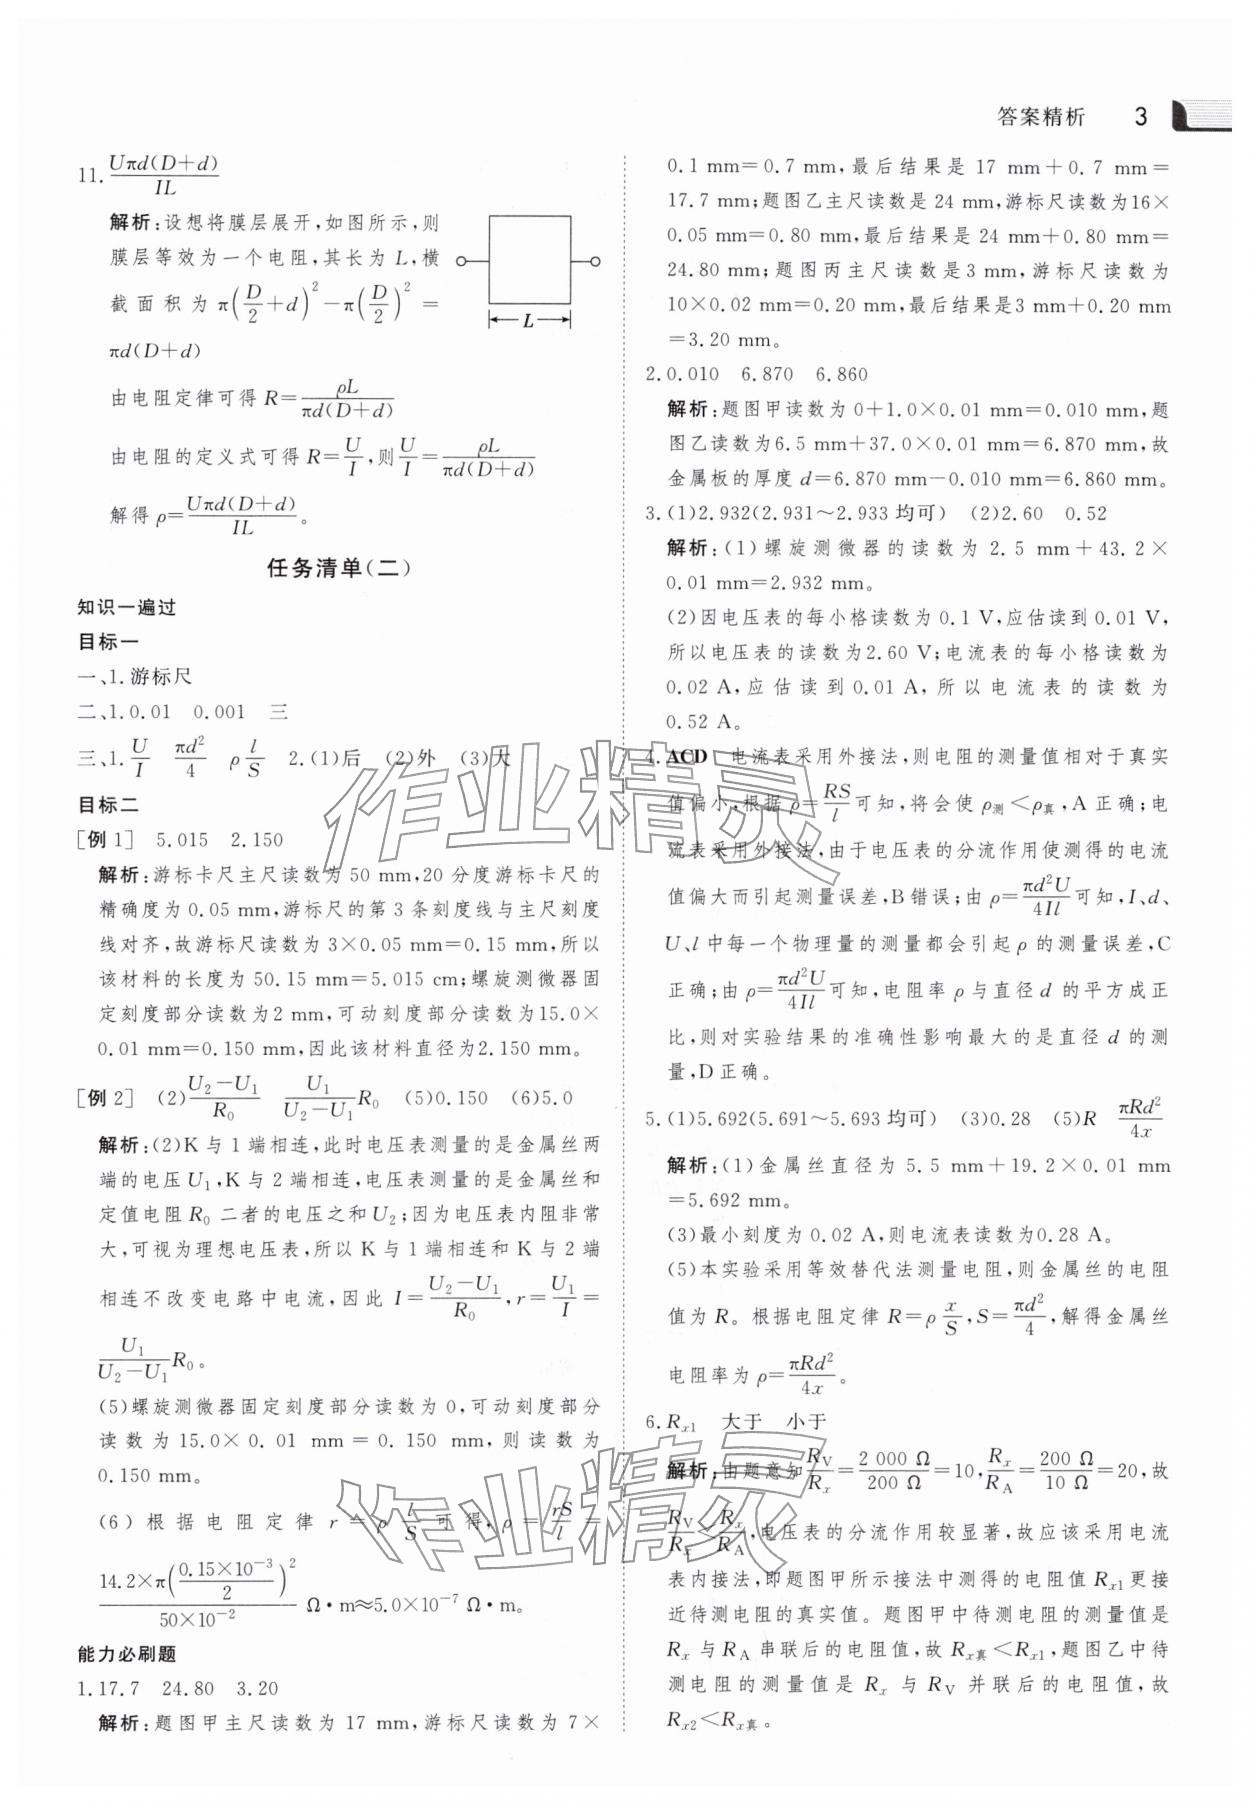 答案精析 3
11. Uπd(D+d)/IL
解析:设想将膜层展开,如图所示,则
膜层等效为一个电阻,其长为 L,横
截面积为 π(D/2+d)²-π(D/2)²=
πd(D+d)
L
由电阻定律可得 R=ρL/πd(D+d)
由电阻的定义式可得 R=U/I,则U/I=ρL/πd(D+d)
解得 ρ=Uπd(D+d)/IL。
任务清单(二)
知识一遍过
目标一
一、1.游标尺
二、1.0.01 0.001 三
三、1.U/I πd²/4 ρ l/S 2.(1)后 (2)外 (3)大
目标二
[例1] 5.015 2.150
解析:游标卡尺主尺读数为 50 mm,20 分度游标卡尺的
精确度为 0.05 mm,游标尺的第 3 条刻度线与主尺刻度
线对齐,故游标尺读数为 3×0.05 mm=0.15 mm,所以
该材料的长度为 50.15 mm=5.015 cm;螺旋测微器固
定刻度部分读数为2 mm,可动刻度部分读数为15.0×
0.01 mm=0.150 mm,因此该材料直径为2.150 mm。
[例2] (2)U₂-U₁/R₀ U₁/U₂-U₁ R₀ (5)0.150 (6)5.0
解析:(2)K 与 1 端相连,此时电压表测量的是金属丝两
端的电压 U₁,K 与 2 端相连,电压表测量的是金属丝和
定值电阻 R₀ 二者的电压之和U₂;因为电压表内阻非常
大,可视为理想电压表,所以 K 与 1 端相连和 K 与 2 端
相连不改变电路中电流,因此 I=U₂-U₁/R₀,r=U₁/I=
U₁/U₂-U₁ R₀。
(5)螺旋测微器固定刻度部分读数为 0,可动刻度部分
读数为 15.0×0.01 mm=0.150 mm,则读数为
0.150 mm。
(6)根据电阻定律 r=ρ l/S 可得,ρ=rS/l=
14.2×π(0.15×10⁻³/2)²/50×10⁻² Ω·m≈5.0×10⁻⁷ Ω·m。
能力必刷题
1.17.7 24.80 3.20
解析:题图甲主尺读数为 17 mm,游标尺读数为 7×
0.1 mm=0.7 mm,最后结果是 17 mm+0.7 mm=
17.7 mm;题图乙主尺读数是 24 mm,游标尺读数为16×
0.05 mm=0.80 mm,最后结果是 24 mm+0.80 mm=
24.80 mm;题图丙主尺读数是3 mm,游标尺读数为
10×0.02 mm=0.20 mm,最后结果是3 mm+0.20 mm
=3.20 mm。
2.0.010 6.870 6.860
解析:题图甲读数为 0+1.0×0.01 mm=0.010 mm,题
图乙读数为6.5 mm+37.0×0.01 mm=6.870 mm,故
金属板的厚度 d=6.870 mm-0.010 mm=6.860 mm。
3.(1)2.932(2.931~2.933 均可) (2)2.60 0.52
解析:(1)螺旋测微器的读数为 2.5 mm+43.2×
0.01 mm=2.932 mm。
(2)因电压表的每小格读数为 0.1 V,应估读到 0.01 V,
所以电压表的读数为2.60 V;电流表的每小格读数为
0.02 A,应估读到 0.01 A,所以电流表的读数为
0.52 A。
4.ACD 电流表采用外接法,则电阻的测量值相对于真实
值偏小,根据 ρ=RS/l 可知,将会使 ρ测<ρ真,A 正确;电
流表采用外接法,由于电压表的分流作用使测得的电流
值偏大而引起测量误差,B错误;由 ρ=πd²U/4Il 可知,I、d、
U、l 中每一个物理量的测量都会引起 ρ 的测量误差,C
正确;由 ρ=πd²U/4Il 可知,电阻率 ρ 与直径 d 的平方成正
比,则对实验结果的准确性影响最大的是直径 d 的测
量,D正确。
5.(1)5.692(5.691~5.693 均可) (3)0.28 (5)R πRd²/4x
解析:(1)金属丝直径为 5.5 mm+19.2×0.01 mm
=5.692 mm。
(3)最小刻度为 0.02 A,则电流表读数为0.28 A。
(5)本实验采用等效替代法测量电阻,则金属丝的电阻
值为 R。根据电阻定律 R=ρ x/S,S=πd²/4,解得金属丝
电阻率为 ρ=πRd²/4x。
6.Rx1 大于 小于
解析:由题意知 RV/Rx=2 000 Ω/200 Ω=10,Rx/RA=200 Ω/10 Ω=20,故
RV/Rx<Rx/RA,电压表的分流作用较显著,故应该采用电流
表内接法,即题图甲所示接法中测得的电阻值 Rx1更接
近待测电阻的真实值。题图甲中待测电阻的测量值是
Rx 与 RA 串联后的电阻值,故 Rx真<Rx1,题图乙中待
测电阻的测量值是 Rx 与 RV 并联后的电阻值,故
Rx2<Rx真。
作业精灵
作业精灵